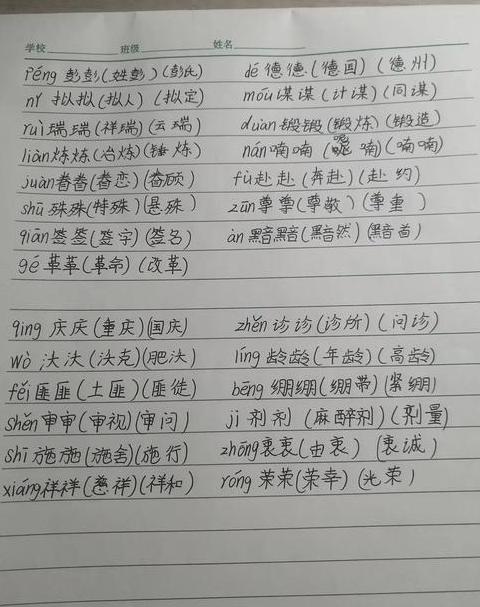 学校 班级 姓名
péng 彭彭(姓彭)(彭氏) dé 德德(德国)(德州)
nǐ 拟拟(拟人)(拟定) móu 谋谋(计谋)(同谋)
ruì 瑞瑞(祥瑞)(云瑞) duàn 锻锻(锻炼)(锻造)
liàn 炼炼(冶炼)(锤炼) nán 喃喃(呢喃)(喃喃)
juàn 眷眷(眷恋)(眷顾) fù 赴赴(奔赴)(赴约)
shū 殊殊(特殊)(悬殊) zūn 尊尊(尊敬)(尊重)
qiān 签签(签字)(签名) àn 黯黯(黯然)(黯首)
gé 革革(革命)(改革)
qìng 庆庆(重庆)(国庆) zhěn 诊诊(诊所)(问诊)
wò 沃沃(沃克)(肥沃) líng 龄龄(年龄)(高龄)
fěi 匪匪(土匪)(匪徒) bēng 绷绷(绷带)(紧绷)
shěn 审审(审视)(审问) jì 剂剂(麻醉剂)(剂量)
shī 施施(施舍)(施行) zhōng 衷衷(由衷)(衷诚)
xiáng 祥祥(慈祥)(祥和) róng 荣荣(荣幸)(光荣)